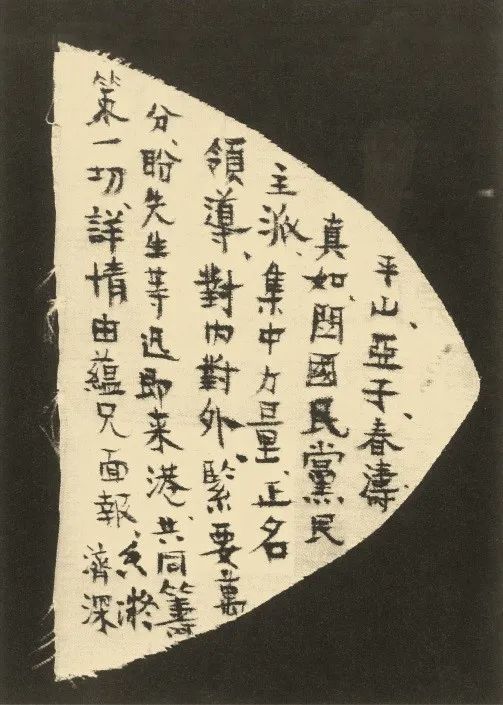 平山、亞子、春濤、
真如、國民黨民
主派、集中力量、正名
領導、對內對外、緊要萬
分、盼先生等迅即来港、共同籌
策一切、詳情由蘊兄面報、
濟深